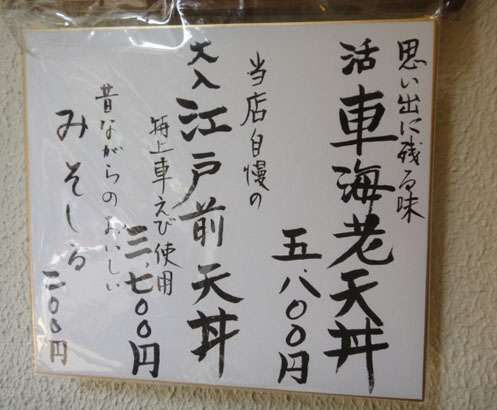 思い出に残る味
活車海老天丼
五、八〇〇円
当店自慢の
大入江戸前天丼
特上車えび使用
三、七〇〇円
昔ながらのおいしい
みそしる
二〇〇円